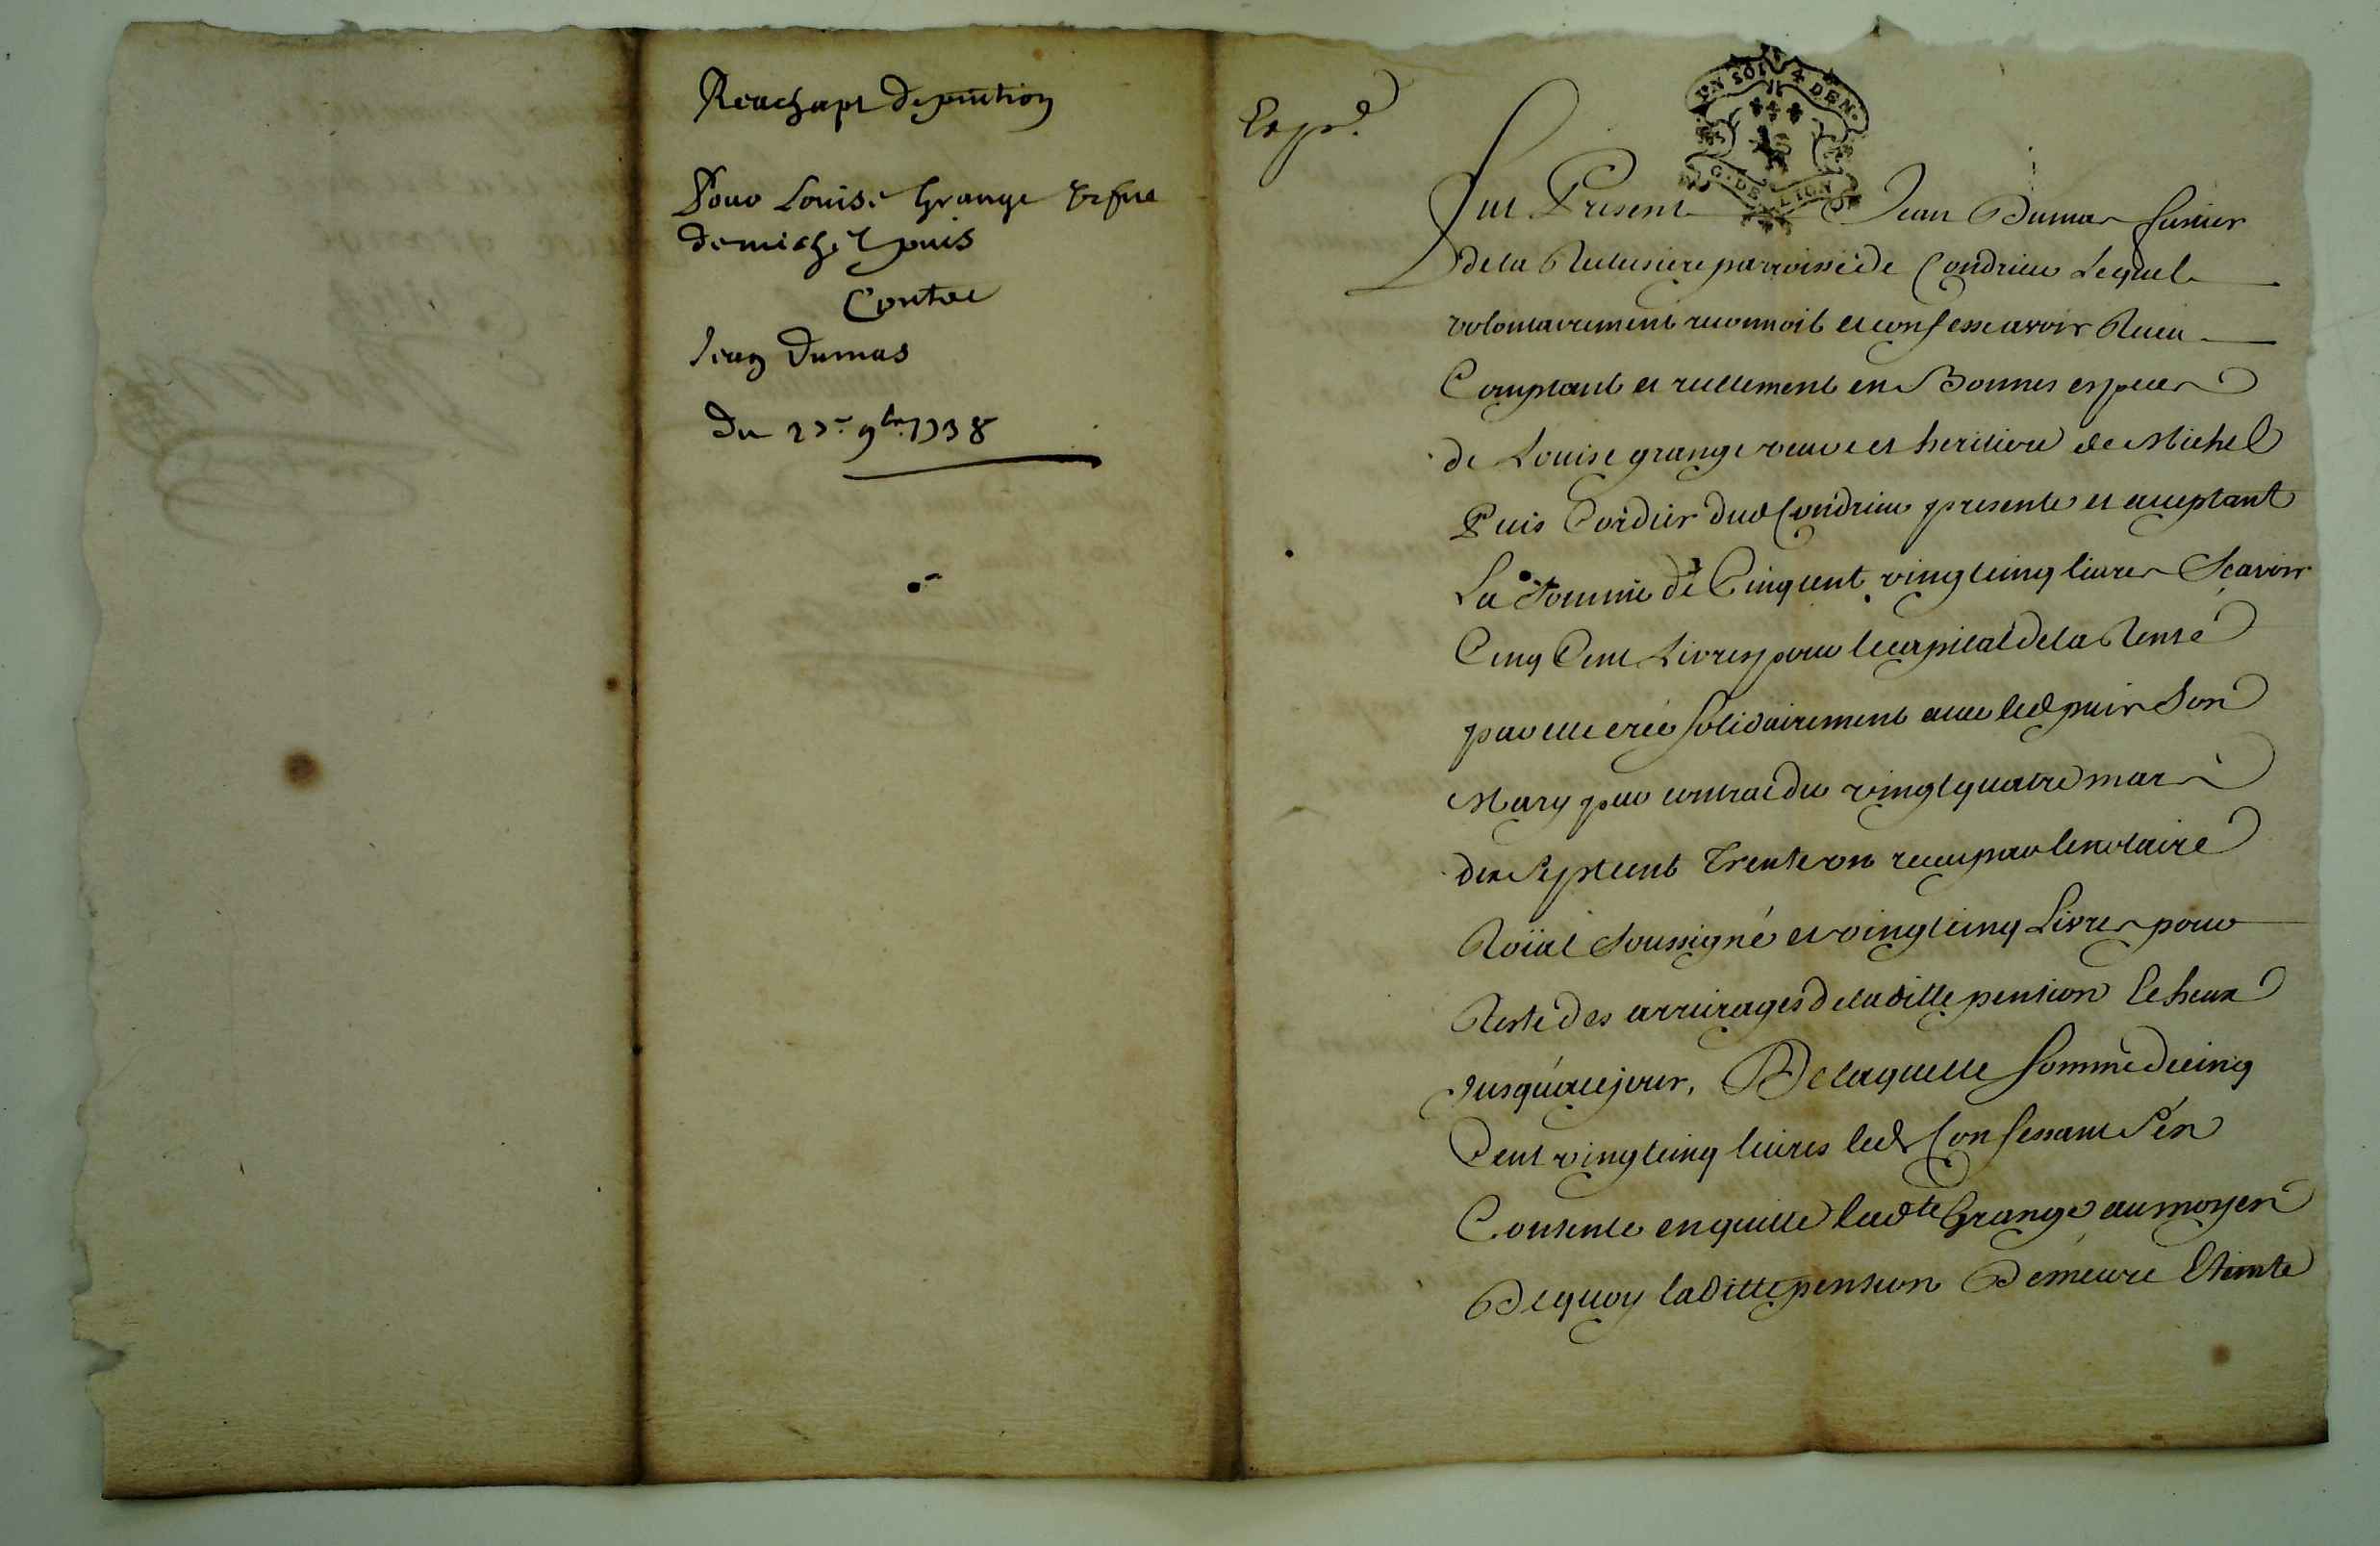 Reachapt de pention
Pour Louise Grange vefve
de michel puis
Contre
Jean Dumas
Du 27e 9bre 1738
Exped.
UN SOL 4 DEN.
G. DE LION
Fut Present Jean Dumas
de la parroisse de Condrieu Lequel
volontairement reconnoit et confesse avoir Receu
Comptant et reellement en Bonnes especes
de Louise grange veuve et heritiere de Michel
Puis Cordier dud Condrieu presente et acceptant
La Somme de Cinq cent vingt cinq livres Scavoir
Cinq Cent Livres pour le capital de la Rente
par elle crée Solidairement avec led puis Son
Mary par contrac du vingt quatre mars
dix Sept cent Trente un receu par le notaire
Roïal Soussigné et vingt cinq Livres pour
Reste des arreirages de la ditte pension
Jusqu'a ce jour, De laquelle Somme de cinq
Cent vingt cinq livres led Confessant S'en
Contente en quitte lad.te Grange au moyen
De quoy la ditte pension Demeure Eteinte